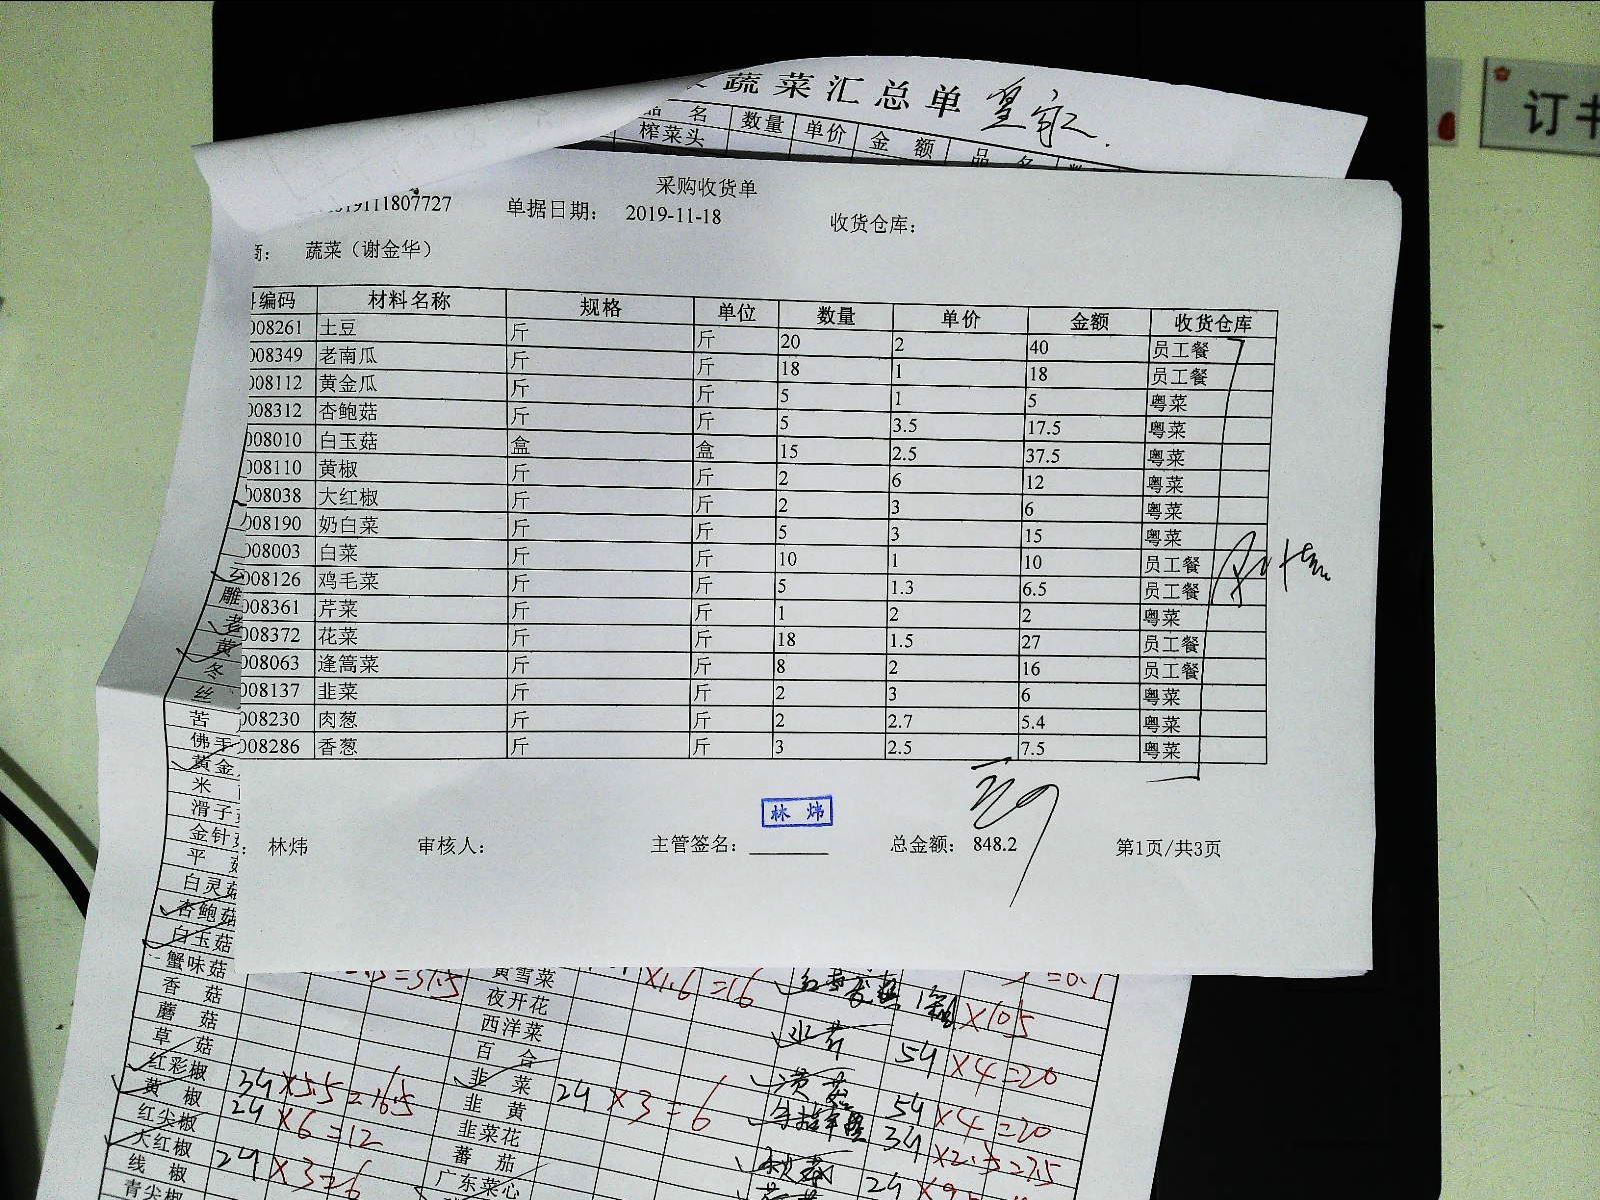 蔬菜汇总单 皇家
品名 数量 单价 金额 品名
榨菜头
订书
采购收货单
19111807727 单据日期: 2019-11-18 收货仓库:
商: 蔬菜（谢金华）
编码 材料名称 规格 单位 数量 单价 金额 收货仓库
008261 土豆 斤 斤 20 2 40 员工餐
008349 老南瓜 斤 斤 18 1 18 员工餐
008112 黄金瓜 斤 斤 5 1 5 粤菜
008312 杏鲍菇 斤 斤 5 3.5 17.5 粤菜
008010 白玉菇 盒 盒 15 2.5 37.5 粤菜
008110 黄椒 斤 斤 2 6 12 粤菜
008038 大红椒 斤 斤 2 3 6 粤菜
008190 奶白菜 斤 斤 5 3 15 粤菜
008003 白菜 斤 斤 10 1 10 员工餐
008126 鸡毛菜 斤 斤 5 1.3 6.5 员工餐
008361 芹菜 斤 斤 1 2 2 粤菜
008372 花菜 斤 斤 18 1.5 27 员工餐
008063 逢篙菜 斤 斤 8 2 16 员工餐
008137 韭菜 斤 斤 2 3 6 粤菜
008230 肉葱 斤 斤 2 2.7 5.4 粤菜
008286 香葱 斤 斤 3 2.5 7.5 粤菜
林炜
: 林炜 审核人: 主管签名: 总金额: 848.2 第1页/共3页
老
黄
冬
丝
苦
佛手
黄金
米
滑子
金针
平
白灵菇
杏鲍菇
白玉菇
蟹味菇 =37.5 黄雪菜 ×1.6=16
香菇 夜开花 ×10.5
蘑菇 西洋菜
草菇 百合 ×4=20
红彩椒 ×5.5=16.5 韭菜 ×3=6
黄椒 ×6=12 韭黄 ×4=20
红尖椒 韭菜花 ×2.5=7.5
大红椒 ×3=6 蕃茄
线椒 广东菜心
青尖椒